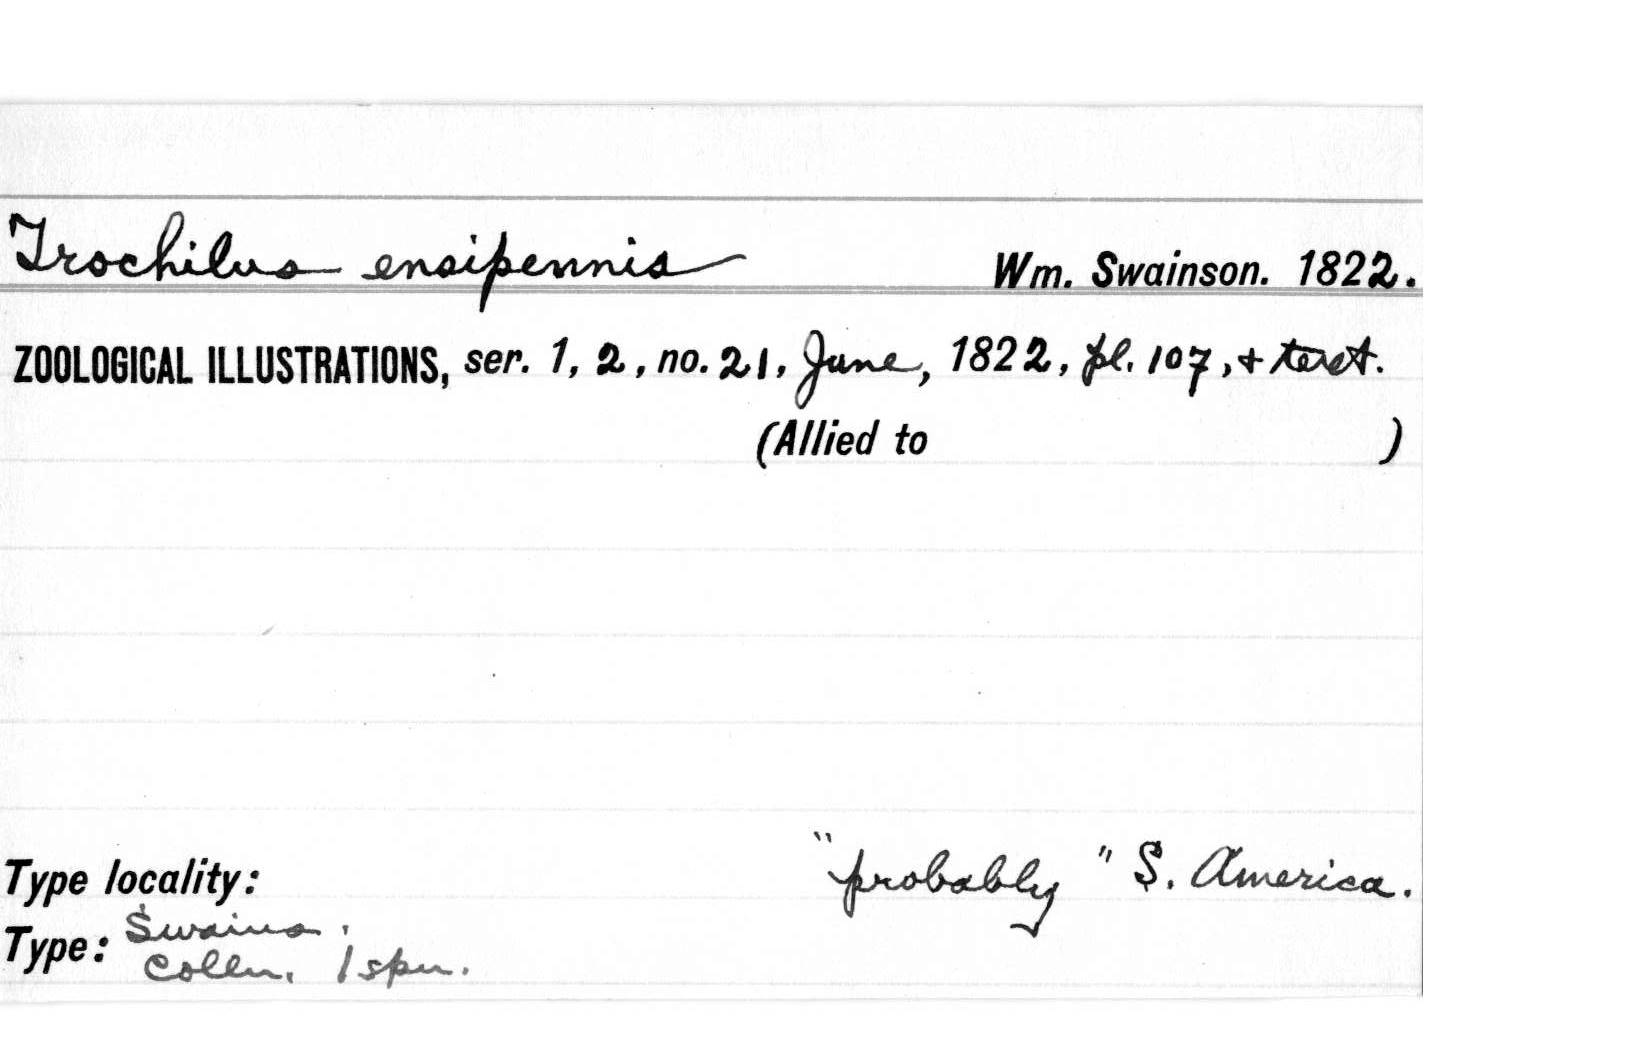 Trochilus ensipennis Wm. Swainson. 1822.
ZOOLOGICAL ILLUSTRATIONS, ser. 1, 2, no. 21, June, 1822, pl. 107, + text.
(Allied to )
Type locality: "probably" S. America.
Type: Swains.
Colln. 1 spn.